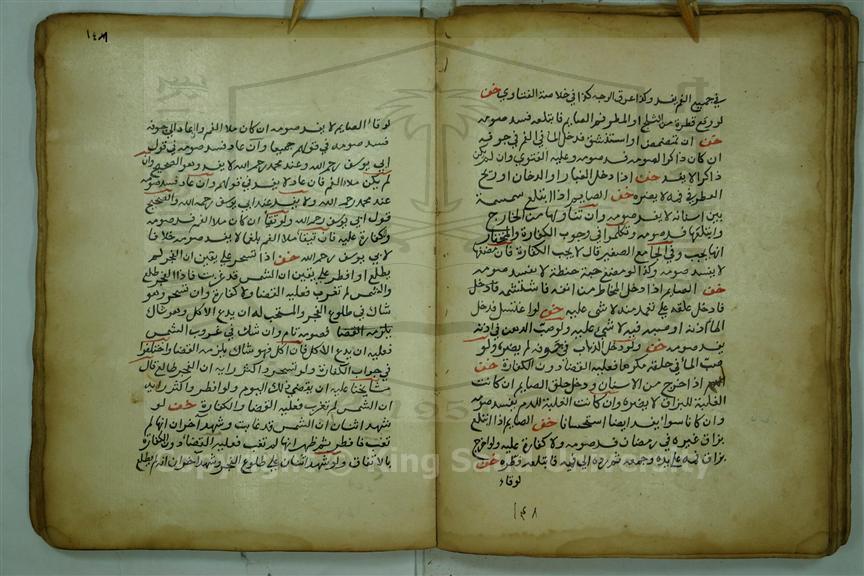 في جميع الفم يفسد وكذا عرق الوجه كذا في خلاصة الفتاوي خف
لو رفع قطرة من الثلج او المطر فم الصايم فابتلعه فسد صومه
خف ان تمضمض او استنشق فدخل الما في الفم في جوفه
ان كان ذاكرا لصومه فسد صومه وعليه الفتوي وان لم يكن
ذاكرا لا يفسد خف اذا دخل الغبار او الدخان او ريح
العطر في فيه لا يضره خف الصايم اذا ابتلع سمسمة
بين اسنانه لا يفسد صومه وان تناولها من الخارج
وابتلعها فسد صومه وتكلموا في وجوب الكفارة والمختار
انها يجب وفي الجامع الصغير قال لا يجب الكفارة فان مضغها
لا يفسد صومه وكذا لو مضغ حبة حنطة لا يفسد صومه
خف الصايم اذا دخل المخاط من انفه فاستنشقه فادخل
فادخل حلقه على تعمد منه لا شي عليه خف لو اغتسل فدخل
الما اذنه او صبه فيه لا شي عليه ولو صب الدهن في اذنه
يفسد صومه خف ولو دخل الذباب في جوفه لم يضره ولو
صب الما في حلقه مكرها فعليه القضا دون الكفارة خف
الدم اذا خرج من الاسنان ودخل حلق الصايم ان كانت
الغلبة للبزاق لا يضره وان كانت الغلبة للدم يفسد صومه
وان كانا سوا يفسد ايضا استحسانا خف الصايم اذا ابتلع
بزاق غيره في رمضان فسد صومه ولا كفارة عليه ولو اخرج
بزاق فمه على يده وجمعه ثم رده الى فيه فابتلعه فطره خف
لو قاء
١٤٨
١٤٨
لو قاء الصايم لا يفسد صومه ان كان ملا الفم واعاد الي جوفه
فسد صومه في قولهم جميعا وان عاد فسد صومه في قول
ابي يوسف رحمه الله وعند محمد رحمه الله لا يفسد وهو الصحيح وان
لم يكن ملا الفم فان عاد لا يفسد في قولهم وان عاد فسد صومه
عند محمد رحمه الله ولا يفسد عند ابي يوسف رحمه الله والصحيح
قول ابي يوسف رحمه الله ولو تقيا ان كان ملا الفم فسد صومه
ولا كفارة عليه فان تقيا ملا الفم بلغما لا يفسد صومه خلافا
لابي يوسف رحمه الله خف اذا تسحر على يقين ان الفجر لم
يطلع او افطر على يقين ان الشمس قد غربت فاذا الفجر طلع
والشمس لم تغرب فعليه القضا ولا كفارة وان تسحر وهو
شاك في طلوع الفجر والمستحب له ان يدع الاكل وهو شاك
يلزمه القضا فصومه تام وان شك في غروب الشمس
فعليه ان يدع الاكل فان اكل فهو شاك يلزمه القضا واختلفوا
في جواب الكفارة ولو تسحر واكثر رايه ان الفجر طالع قال
مشايخنا عليه ان يقضي ذلك اليوم ولو افطر واكثر رايه
ان الشمس لم تغرب فعليه القضا والكفارة خف لو
شهد اثنان ان الشمس قد غابت وشهد اخران انها لم
تغب فافطر ثم ظهر انها لم تغب فعليه القضا دون الكفارة
بالاتفاق ولو شهد اثنان على طلوع الفجر وشهد اخران انه لم يطلع